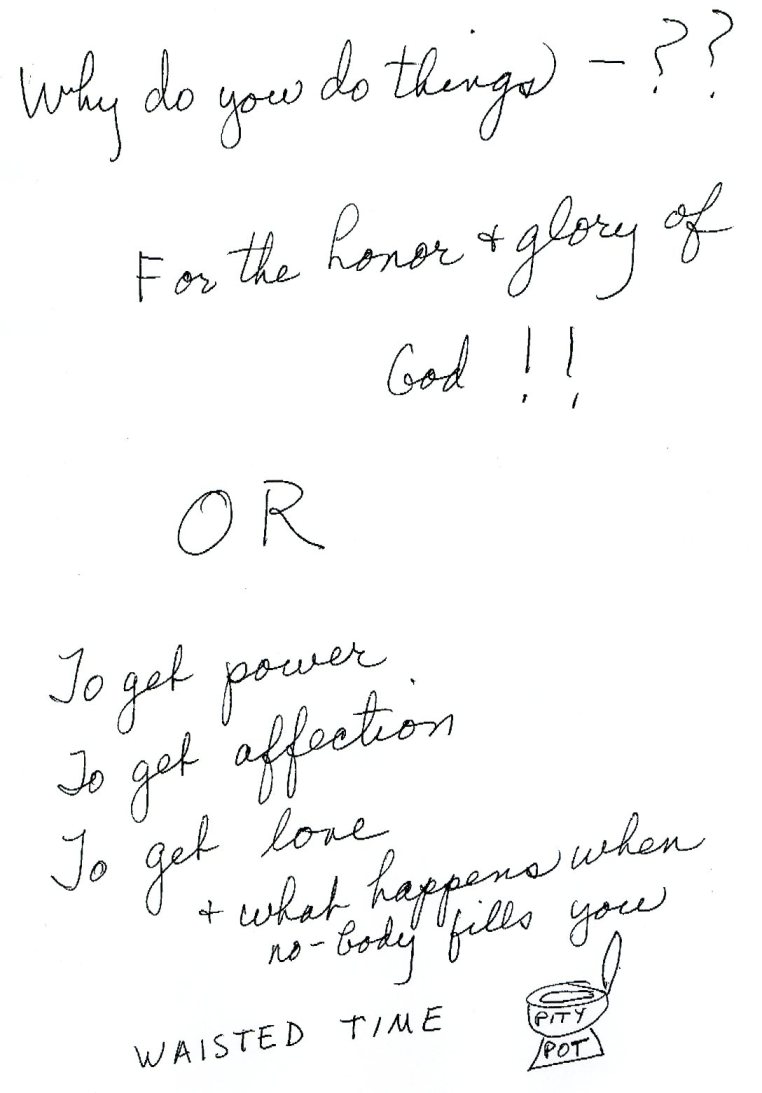 Why do you do things – ??
For the honor + glory of
God !!
OR
To get power
To get affection
To get love
+ what happens when
no-body fills you
WAISTED TIME
PITY
POT